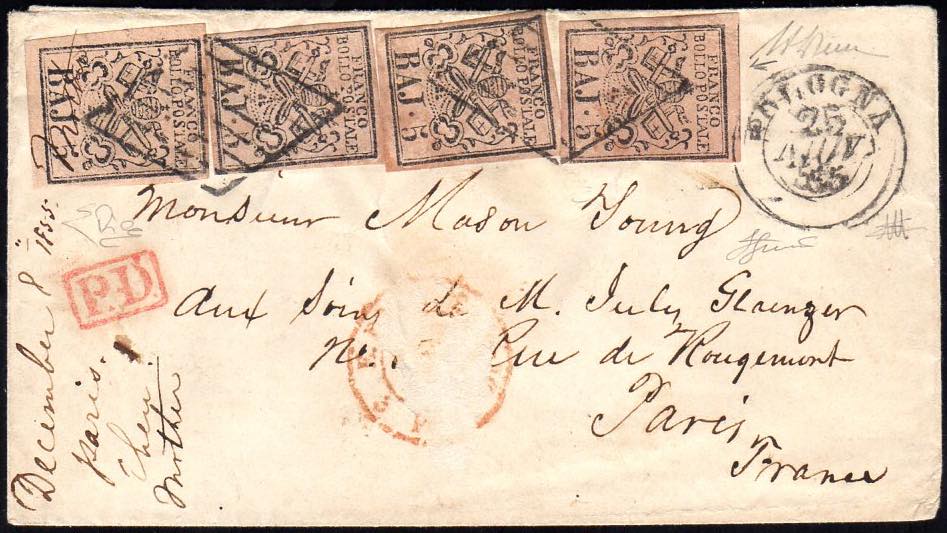 FRANCO
BOLLO POSTALE
BAJ.
FRANCO
BOLLO POSTALE
BAJ. 5
FRANCO
BOLLO POSTALE
BAJ. 5
FRANCO
BOLLO POSTALE
BAJ. 5
BOLOGNA
25
55
Monsieur Mason Young
P.D.
Aux Soins de M. July Glaenzer
Rue de Rougemont
Paris
France
December 8" 1855.
paris.
mother